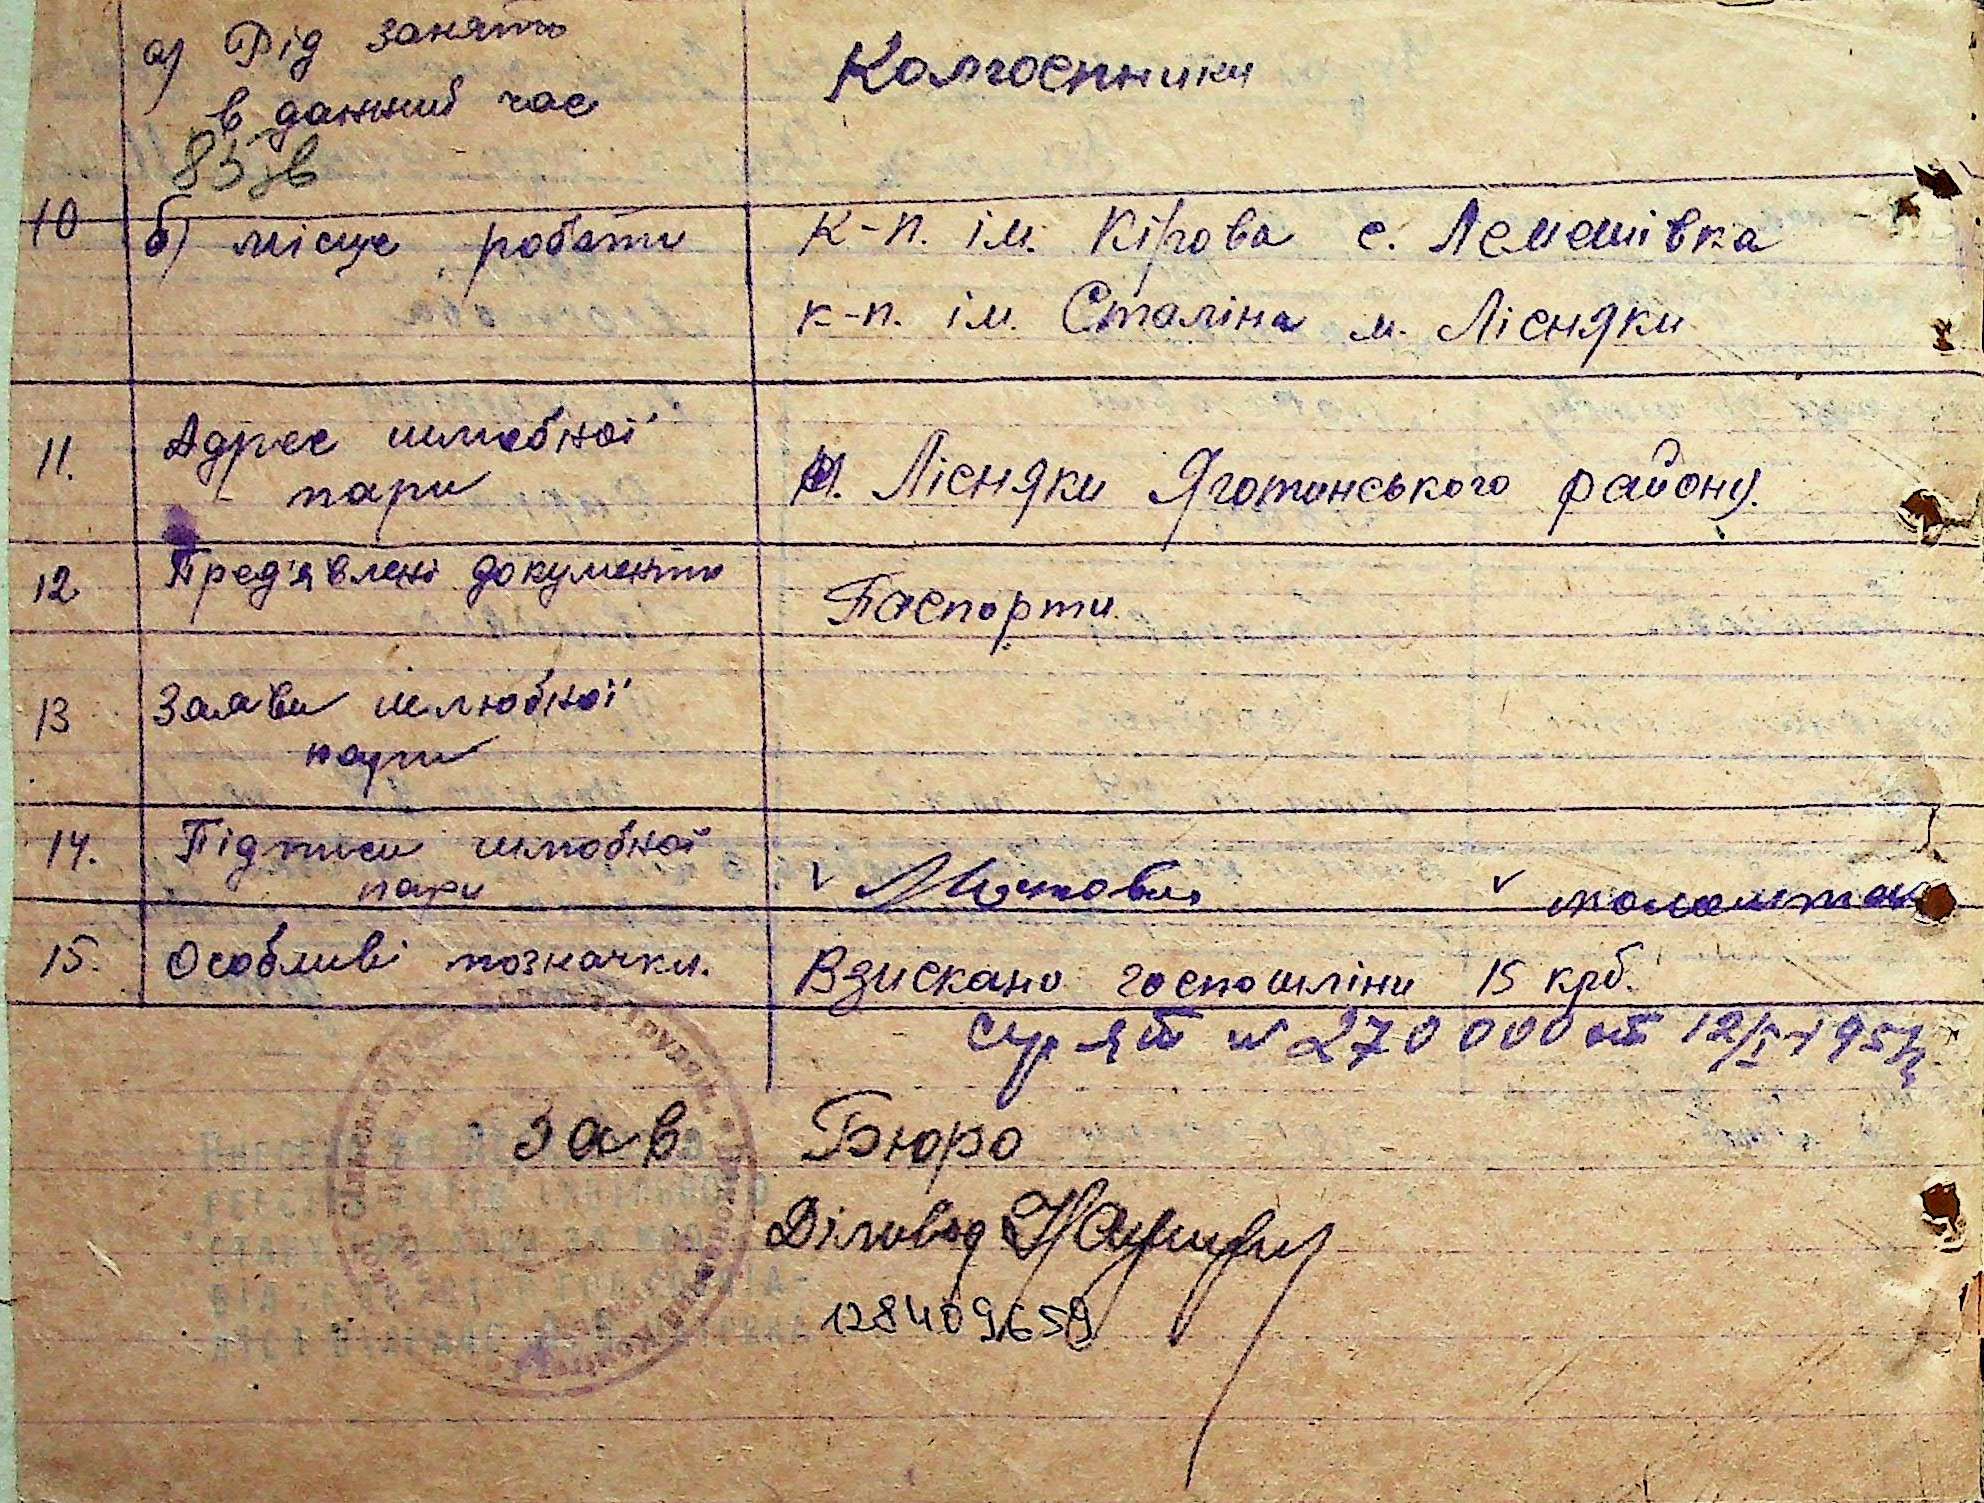 а) Рід занять
в данний час
Колгоспники
10
б) місце роботи
к-п. ім. Кірова с. Лемешівка
к-п. ім. Сталіна м. Лісняки
11.
Адрес шлюбної
пари
м. Лісняки Яготинського району.
12
Пред'явлені документи
Паспорти
13
Заяви шлюбної
пари
14.
Підписи шлюбної
пари
15.
Особливі позначки.
Взискано госпошліни 15 крб.
№ 270000 от 12/I-195
Зав Бюро
Діловод
128409659